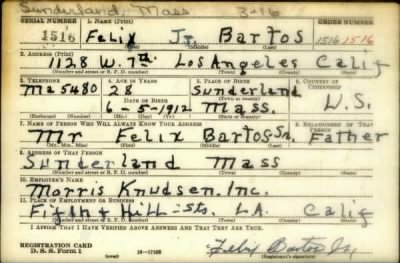 Sunderland, Mass 3-16
SERIAL NUMBER 1. NAME (Print) ORDER NUMBER
1516 Felix Jr. Bartos 1516 1516
(First) (Middle) (Last)
2. ADDRESS (Print)
1128 W. 7th. Los Angeles Calif
(Number and street or R. F. D. number) (Town) (County) (State)
3. TELEPHONE 4. AGE IN YEARS 5. PLACE OF BIRTH 6. COUNTRY OF CITIZENSHIP
Ma 5480 28 Sunderland
(Town or county)
DATE OF BIRTH
6-5-1912 Mass. U.S.
(Exchange) (Number) (Mo.) (Day) (Yr.) (State or country)
7. NAME OF PERSON WHO WILL ALWAYS KNOW YOUR ADDRESS 8. RELATIONSHIP OF THAT PERSON
Mr Felix Bartos Sr. Father
(Mr., Mrs., Miss) (First) (Middle) (Last)
9. ADDRESS OF THAT PERSON
Sunderland Mass
(Number and street or R. F. D. number) (Town) (County) (State)
10. EMPLOYER'S NAME
Morris Knudsen. Inc.
11. PLACE OF EMPLOYMENT OR BUSINESS
Fifth & Hill-sts. L.A. Calif
(Number and street or R. F. D. number) (Town) (County) (State)
I AFFIRM THAT I HAVE VERIFIED ABOVE ANSWERS AND THAT THEY ARE TRUE.
REGISTRATION CARD
D. S. S. Form 1 (over) 16-17105 Felix Bartos Jr.